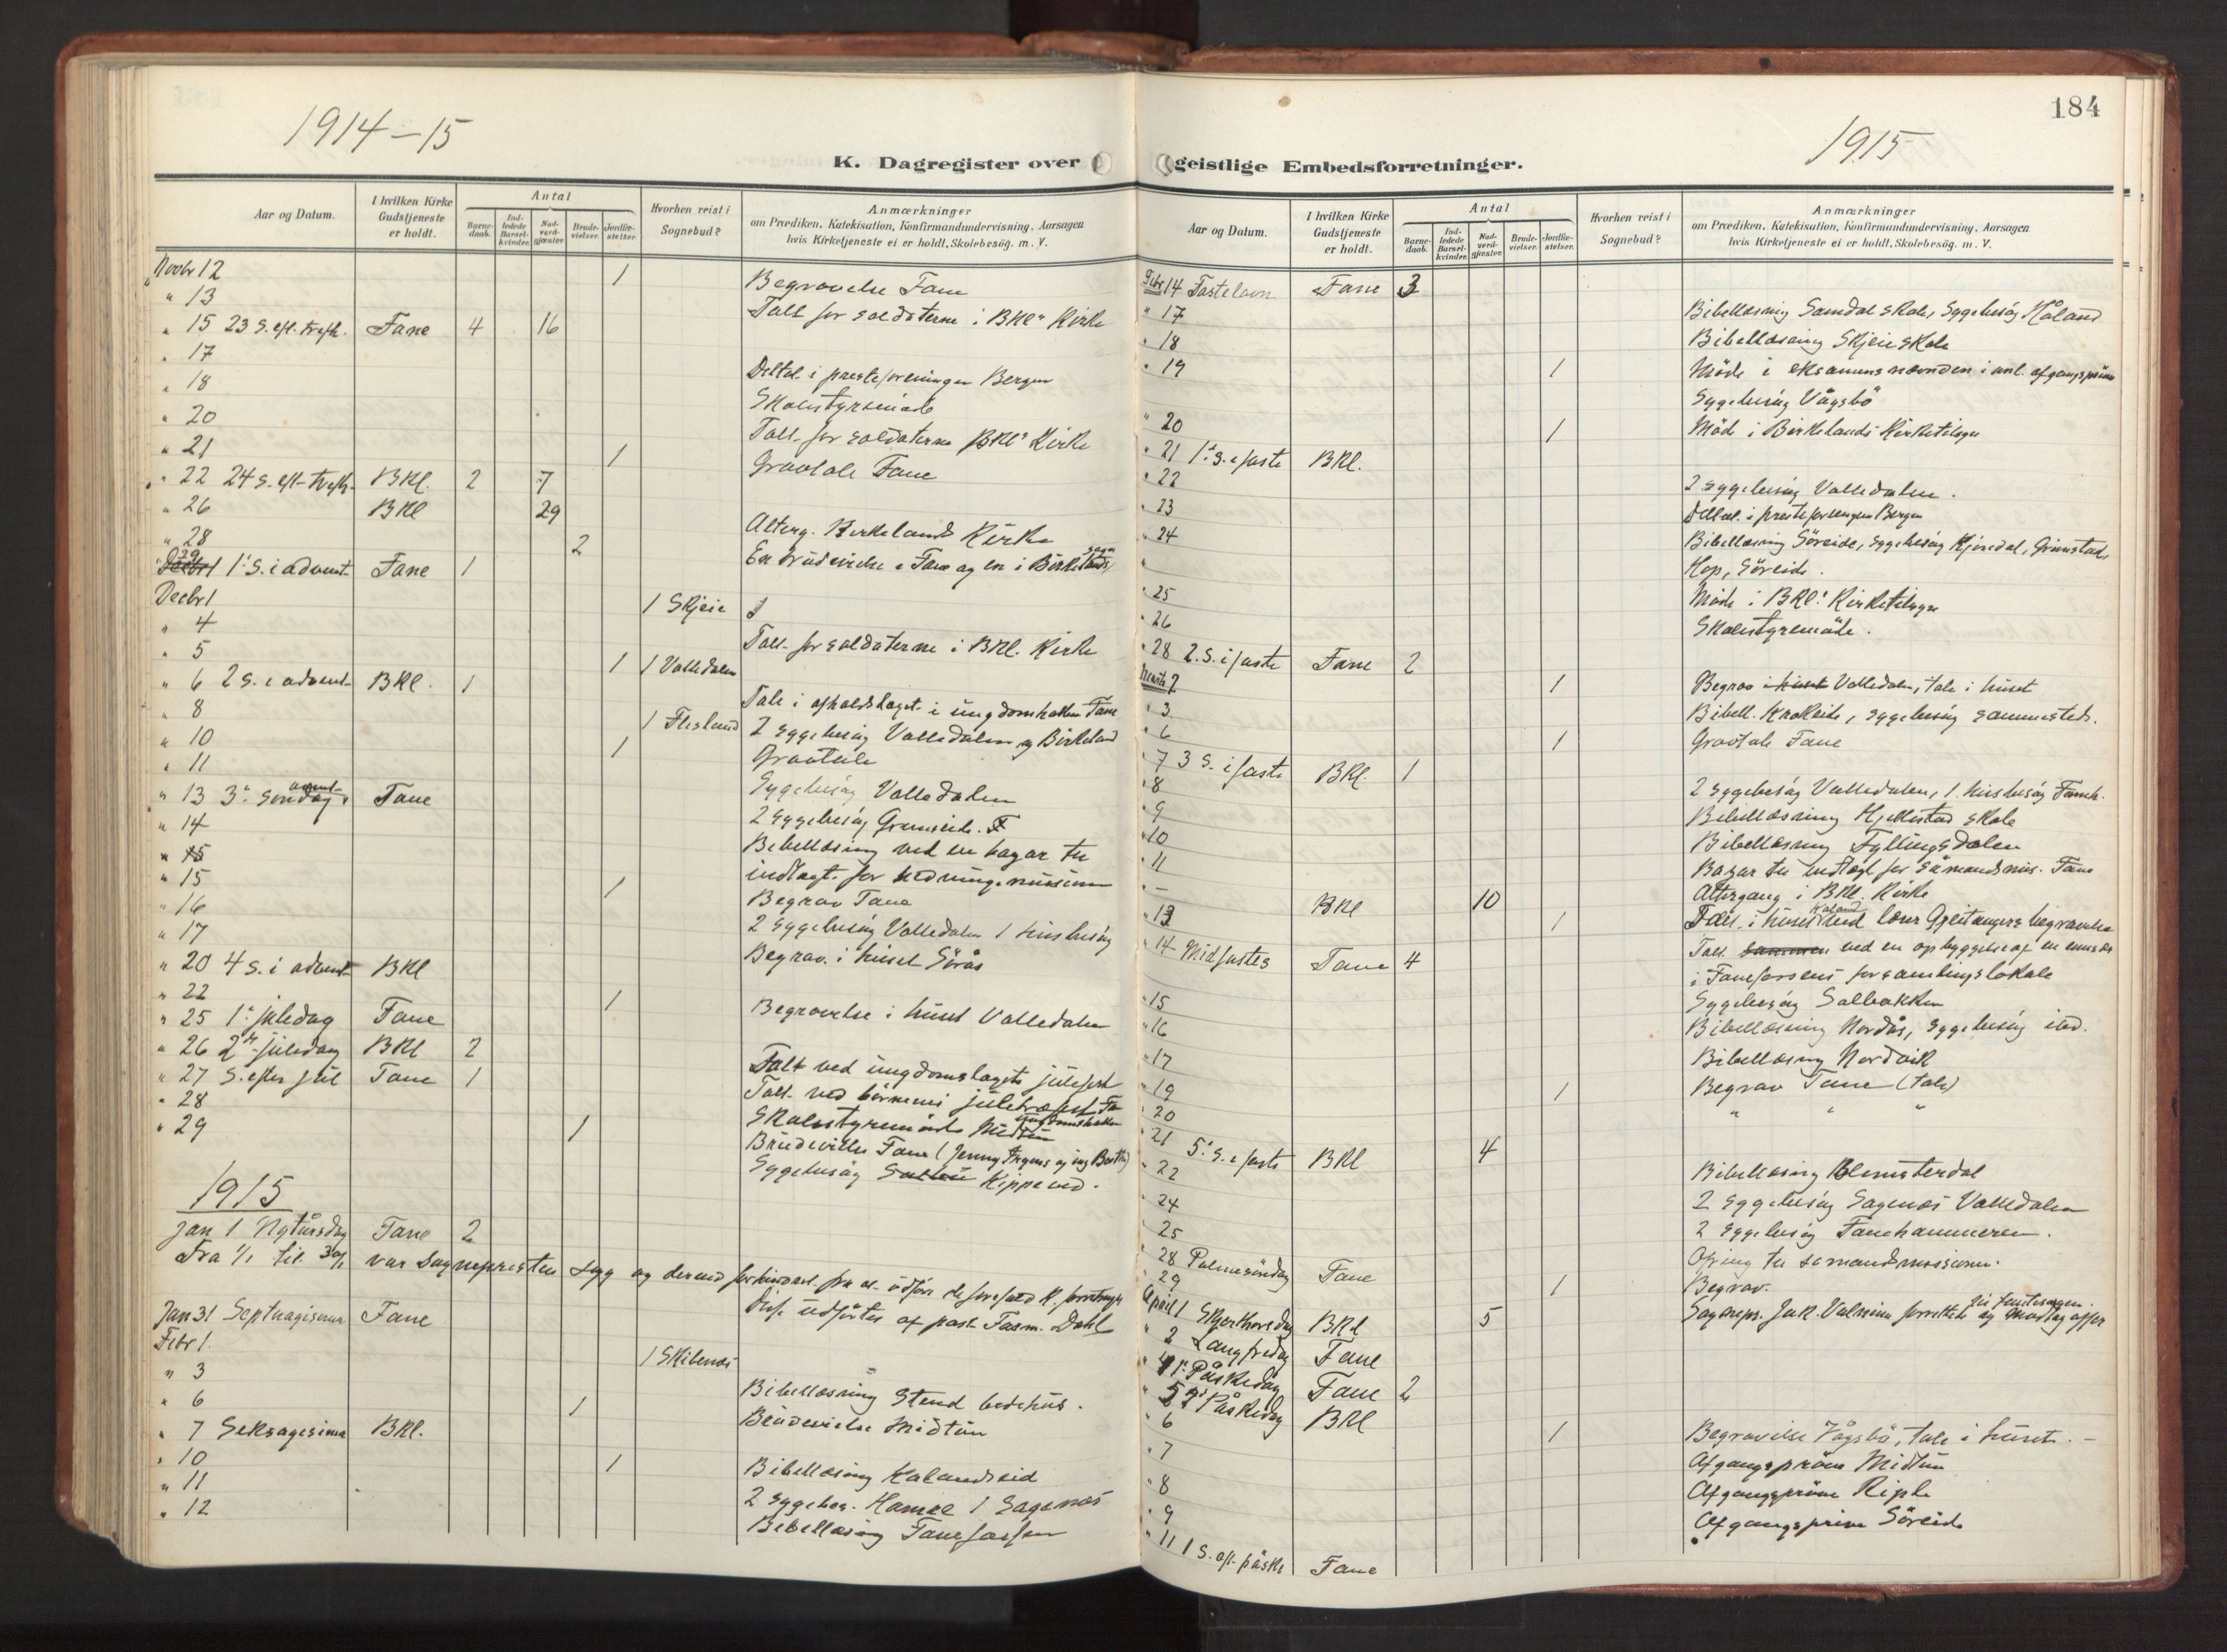 184
1914–15
1915
K. Dagregister over
geistlige Embedsforretninger.
Aar og Datum.
I hvilken Kirke Gudstjeneste er holdt.
Antal
Barne-daab.
Ind-ledede Barsel-kvinder.
Nad-verd-gjæster.
Brude-vielser.
Jordfæ-stelser.
Hvorhen reist i Sognebud?
Anmærkninger
om Prædiken, Katekisation, Konfirmandundervisning. Aarsagen
hvis Kirketjeneste ei er holdt. Skolebesøg. m. V.
Novbr 12 1 Begravelse Fane
" 13
" 15 23 S. eft. trefh. Fane 4 16 Talt for soldaterne i BKls Kirke
" 17
" 18 Deltat i presteforeningen Bergen
" 20 Skolestyremøde
" 21 1 Talt for soldaterne BKls Kirke
" 22 24 S. eft. trefh. BKl. 2 7 Gravtale Fane
" 26 BKl 29
" 28 2 Alterg. Birkelands Kirke
29 1ste S. i advent Fane 1 En brudevielse i Fane og en i Birkelands sogn
Decbr 1
" 4 1 Skjeie
" 5 Talt for soldaterne i BKl. Kirke
" 6 2 S. i advent BKl. 1 1 1 Valledalen
" 8 Tale i afholdslaget i ungdomshallen Fane
" 10 1 Flesland 2 sygebesøg Valledalen og Birkeland
" 11 1 Gravtale
" 13 3die søndag advent Fane Sygebesøg Valledalen
" 14 2 sygebesøg
" 15 Bibellæsning ved en bazar til
" 15 indtægt for hedningemissionen
" 16 1 Begrav Fane
" 17 2 sygebesøg Valledalen 1 husbesøg
" 20 4 S. i advent BKl Begrav. i huset Sørås
" 22
" 25 1ste juledag Fane 1 Begravelse i huset Valledalen
" 26 2den juledag BKl 2
" 27 S. efter jul Fane 1 Talt ved ungdomslagets julefest
" 28 Talt ved børnenes juletræfest Fa ungdomshallen
" 29 1 Skolestyremøde Midtun
Brudevielse Fane (Jenny
Sygebesøg Kippersd.
1915
Jan 1 Nytårsdag Fane 2
Fra 1/1 til 30/1 var Sognepresten syg og derved forhindret fra at udføre de forefald K. forretninger
Jan 31 Septuagesima Fane Disse udførtes af past. Dahl
Febr 1.
" 3 1 Skibenes
" 6 Bibellæsning Stend bedehus.
" 7 Seksagesima BKl. 1 Brudevielse Midtun
" 10
" 11 1 Bibellæsning Kalandseid
" 12 2 sygebes. Hamre 1 Sagenæs
Bibellæsning Fanefossen
Aar og Datum.
I hvilken Kirke Gudstjeneste er holdt.
Antal
Barne-daab.
Ind-ledede Barsel-kvinder.
Nad-verd-gjæster.
Brude-vielser.
Jordfæ-stelser.
Hvorhen reist i Sognebud?
Anmærkninger
om Prædiken, Katekisation, Konfirmandundervisning. Aarsagen
hvis Kirketjeneste ei er holdt. Skolebesøg. m. V.
Febr 14 Fastelavn Fane 3
" 17 Bibellæsning Samdal skole, sygebesøg Håland
" 18 Bibellæsning Skjeie skole
" 19 1 Møde i eksamensnævnden i anl. afgangsprøven
Sygebesøg Vågsbø
" 20 1 Møde i Birkelands Kirketilsyn
" 21 1ste S. i faste BKl.
" 22 2 sygebesøg Valledalen.
" 23 Deltat i presteforeningen Bergen
" 24 Bibellæsning Søreide, sygebesøg Grimstad,
" Hop, Søreide.
" 25 Møde i BKls Kirketilsyn
" 26 Skolestyremøde.
" 28 2. S. i faste Fane 2
Marts 2 1 Begrav i huset Valledalen, tale i huset
" 3 Bibell. Krokeide, sygebesøg sammesteds.
" 6 1 Gravtale Fane
" 7 3 S. i faste BKl. 1
" 8 2 sygebesøg Valledalen, 1 husbesøg Faneh.
" 9 Bibellæsning Hjellestad skole
" 10 Bibellæsning Fyllingsdalen
" 11 Bazar til indtægt for Sømandsmis. Fane
" – BKl 10 Altergang i BKl. Kirke
" 13 1 Tale i huset Kaland ved lærer begravelse
" 14 Midfaste s Fane 4 Talt ved en opbyggelse af en
i Fanefossens forsamlingslokale
" 15 Sygebesøg Solbakken
" 16 Bibellæsning Nordås, sygebesøg ibd.
" 17 Bibellæsning Nordvik
" 19 1 Begrav Fane (tale)
" 20 " " "
" 21 5te S. i faste BKl 4
" 22 Bibellæsning Blomsterdal
" 24 2 sygebesøg Sagenes Valledalen
" 25 2 sygebesøg Fanehammeren.
" 28 Palmesøndag Fane Ofring til sømandsmissionen.
" 29 1 Begrav.
April 1 Skjærthorsdag BKl 5 Sogneps. Jak. Valnum forrettede og offer
" 2 Langfredag Fane
" 4 1ste Påskedag Fane 2
" 5 2den Påskedag BKl
" 6 1 Begravelse Vågsbø, tale i huset. –
" 7 Afgangsprøve Midtun
" 8 Afgangsprøve Riple
" 9 Afgangsprøve Søreide
" 11 1 S. eft. påske Fane